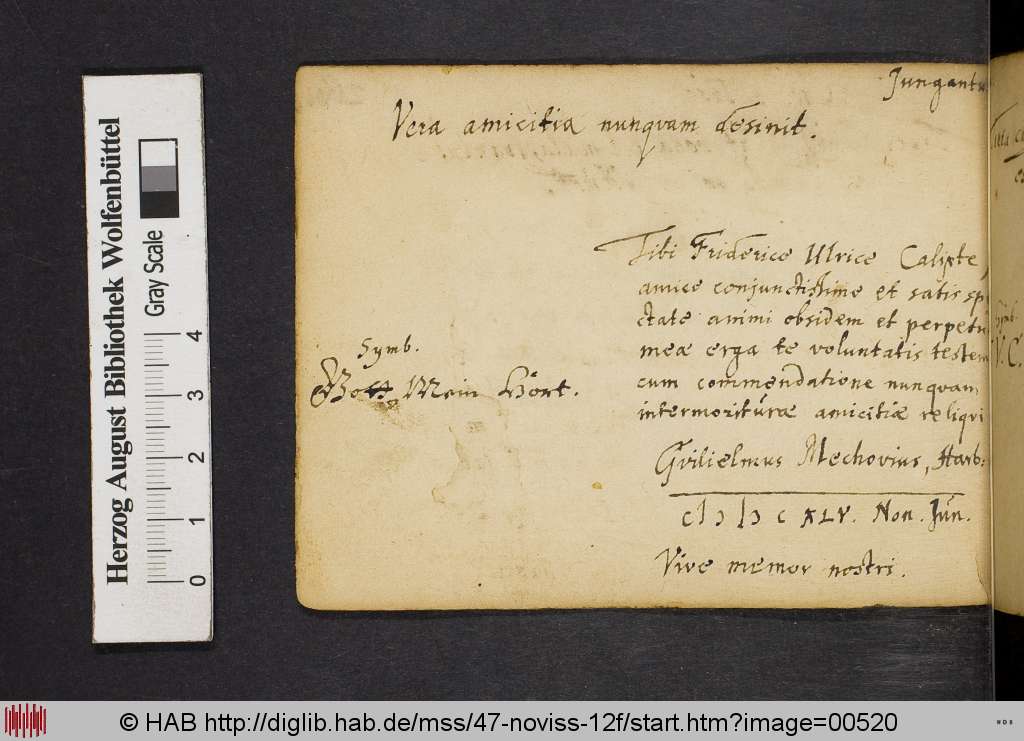 Jungantu
Vera amicitia nunqvam desinit.
Tibi Friderico Ulrice Calixte,
amice conjunctissime et satis sp
ctate animi obsidem et perpetu
meæ erga te voluntatis testem
cum commendatione nunqvam
intermorituræ amicitiæ reliqvi
Symb.
Gott Mein Hort.
Gvilielmus Mechovius, Harb:
cIↄ Iↄ c XLV. Non. Jun.
Vive memor nostri.
V. C.
Herzog August Bibliothek Wolfenbüttel
Gray Scale
0 1 2 3 4
© HAB http://diglib.hab.de/mss/47-noviss-12f/start.htm?image=00520